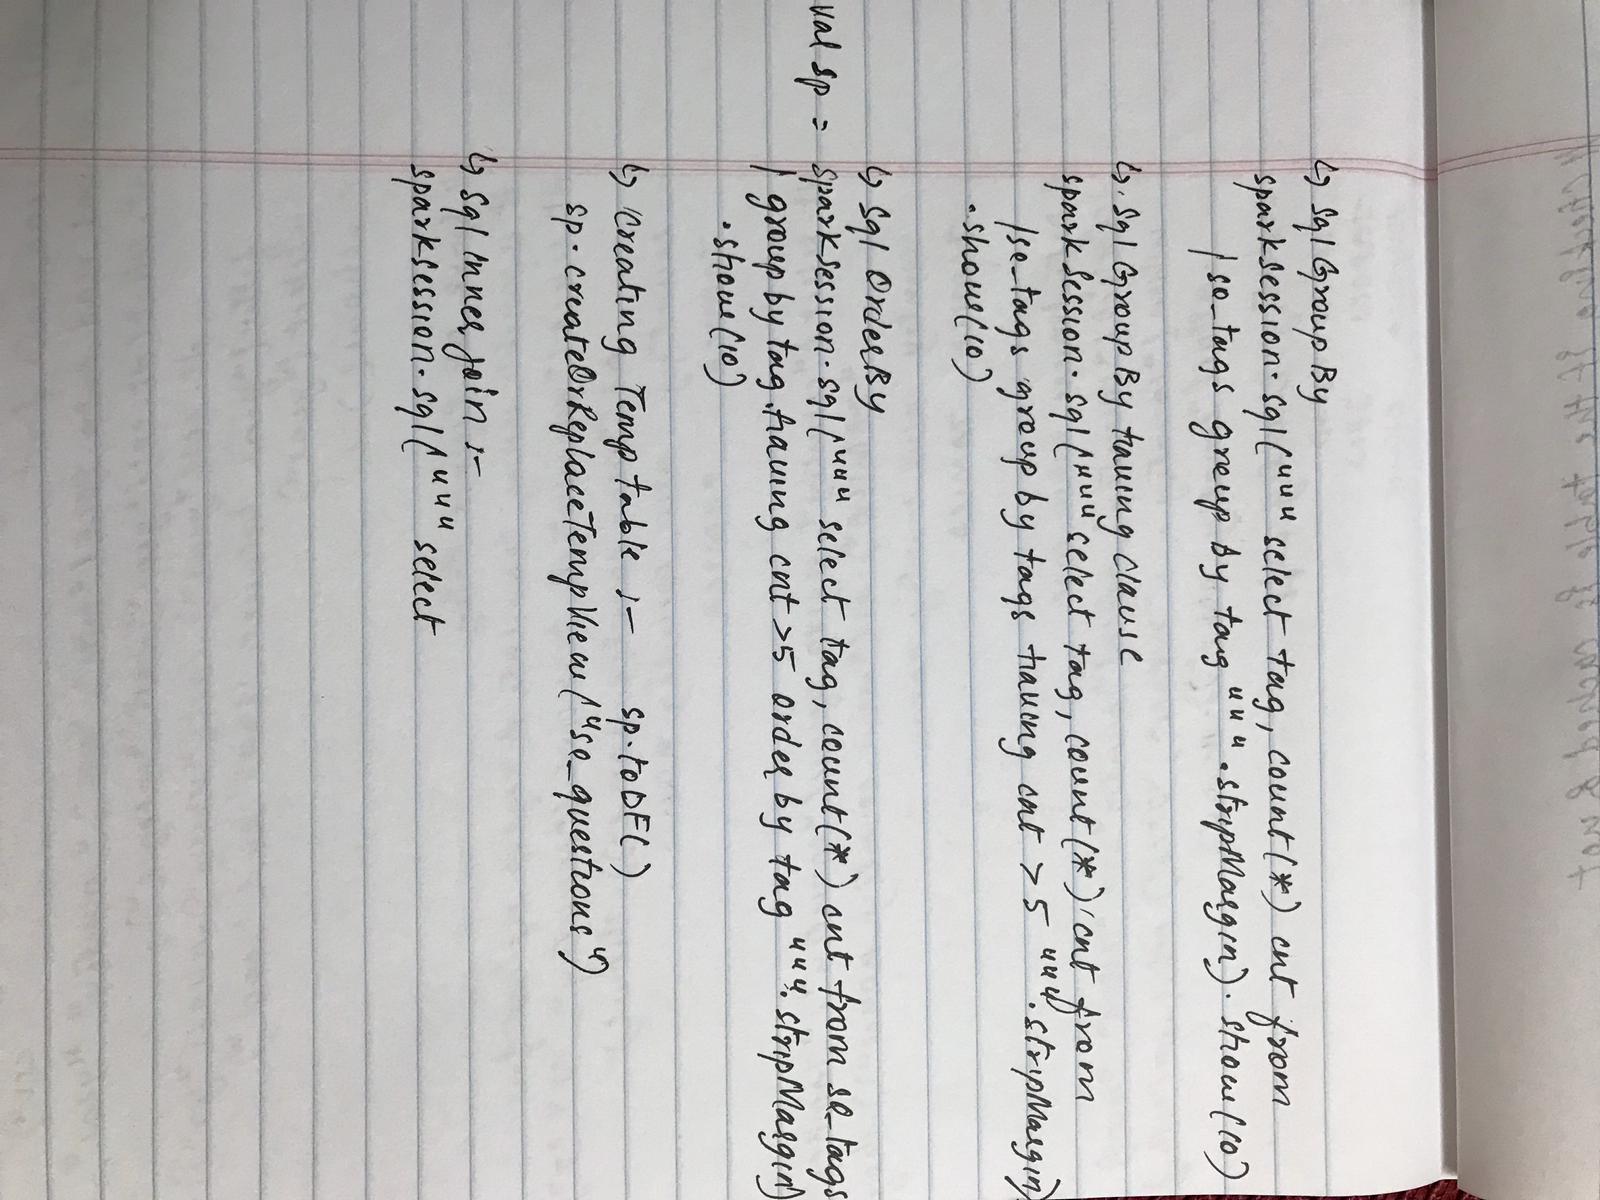 ↳ Sql Group By
sparksession.sql(""" select tag, count(*) cnt from
| so_tags group by tag """.stripMargin).show(10)
↳ .Sql Group By having clause
sparkSession.sql(""" select tag, count(*) cnt from
|so_tags group by tags having cnt > 5 """.stripMargin)
.show(10)
↳ Sql Order By
val sp = sparkSession.sql(""" select tag, count(*) cnt from so_tags
| group by tag having cnt >5 order by tag """.stripMargin)
.show(10)
↳ Creating Temp table :- sp.toDF()
sp.createOrReplaceTempView("so_questions")
↳ Sql Inner join :-
sparksession.sql(""" select